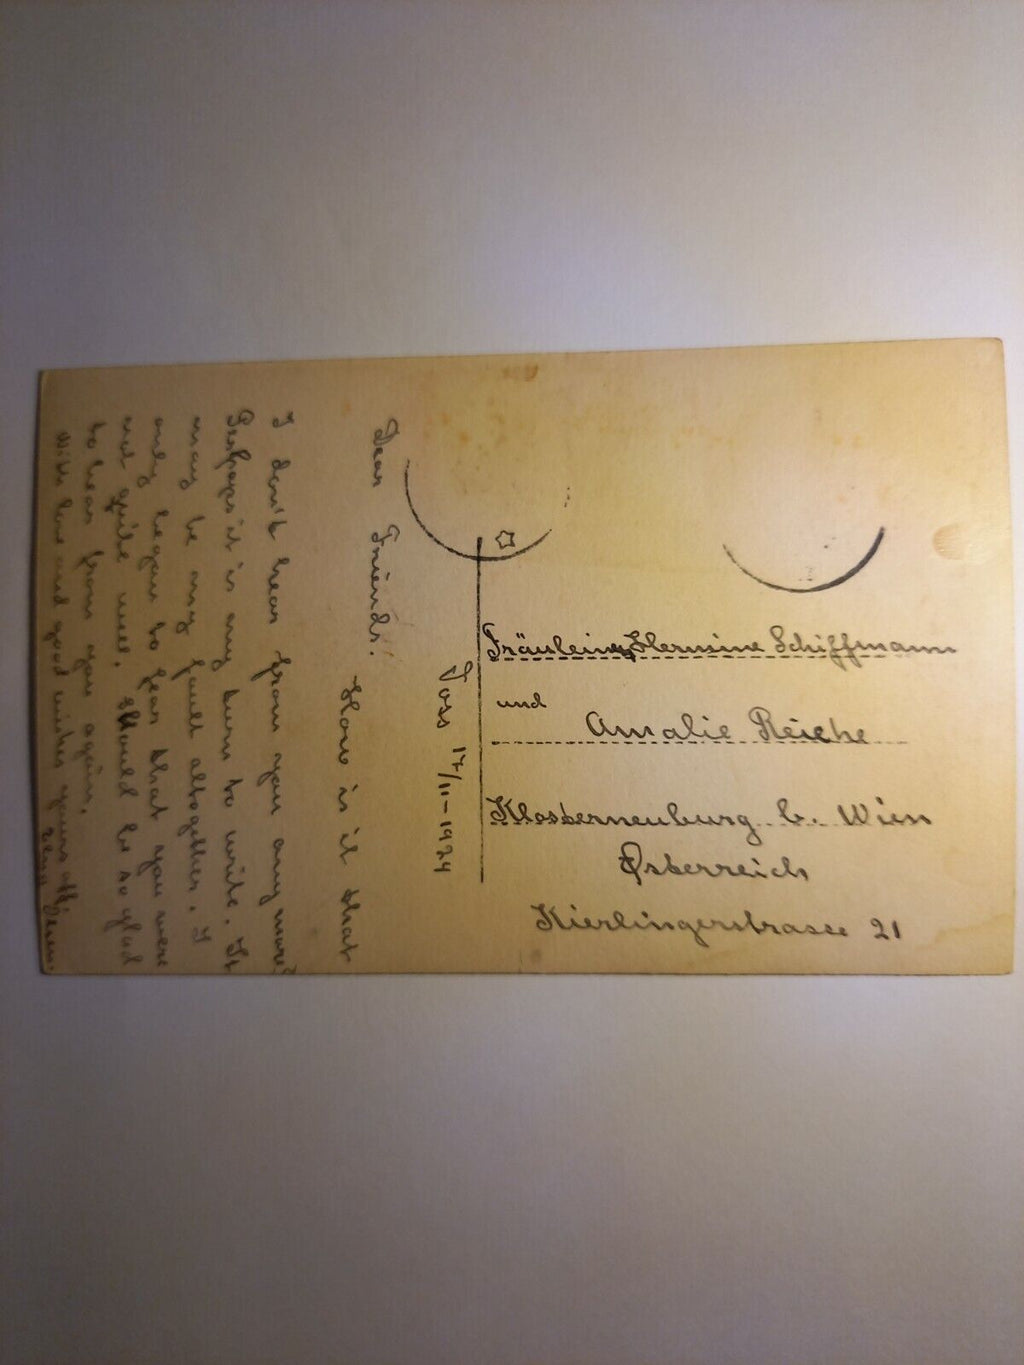 Toss 17/11-1924
Dear Friends!
How is it that
I don't hear from you any more?
Perhaps it is my turn to write. It
may be my fault altogether. I
only began to fear that you were
not quite well. Should be so glad
to hear from you again.
With love and good wishes yours
Fräulein Hermine Schiffmann
und
Amalie Reiche
Klosterneuburg b. Wien
Österreich
Kierlingerstrasse 21